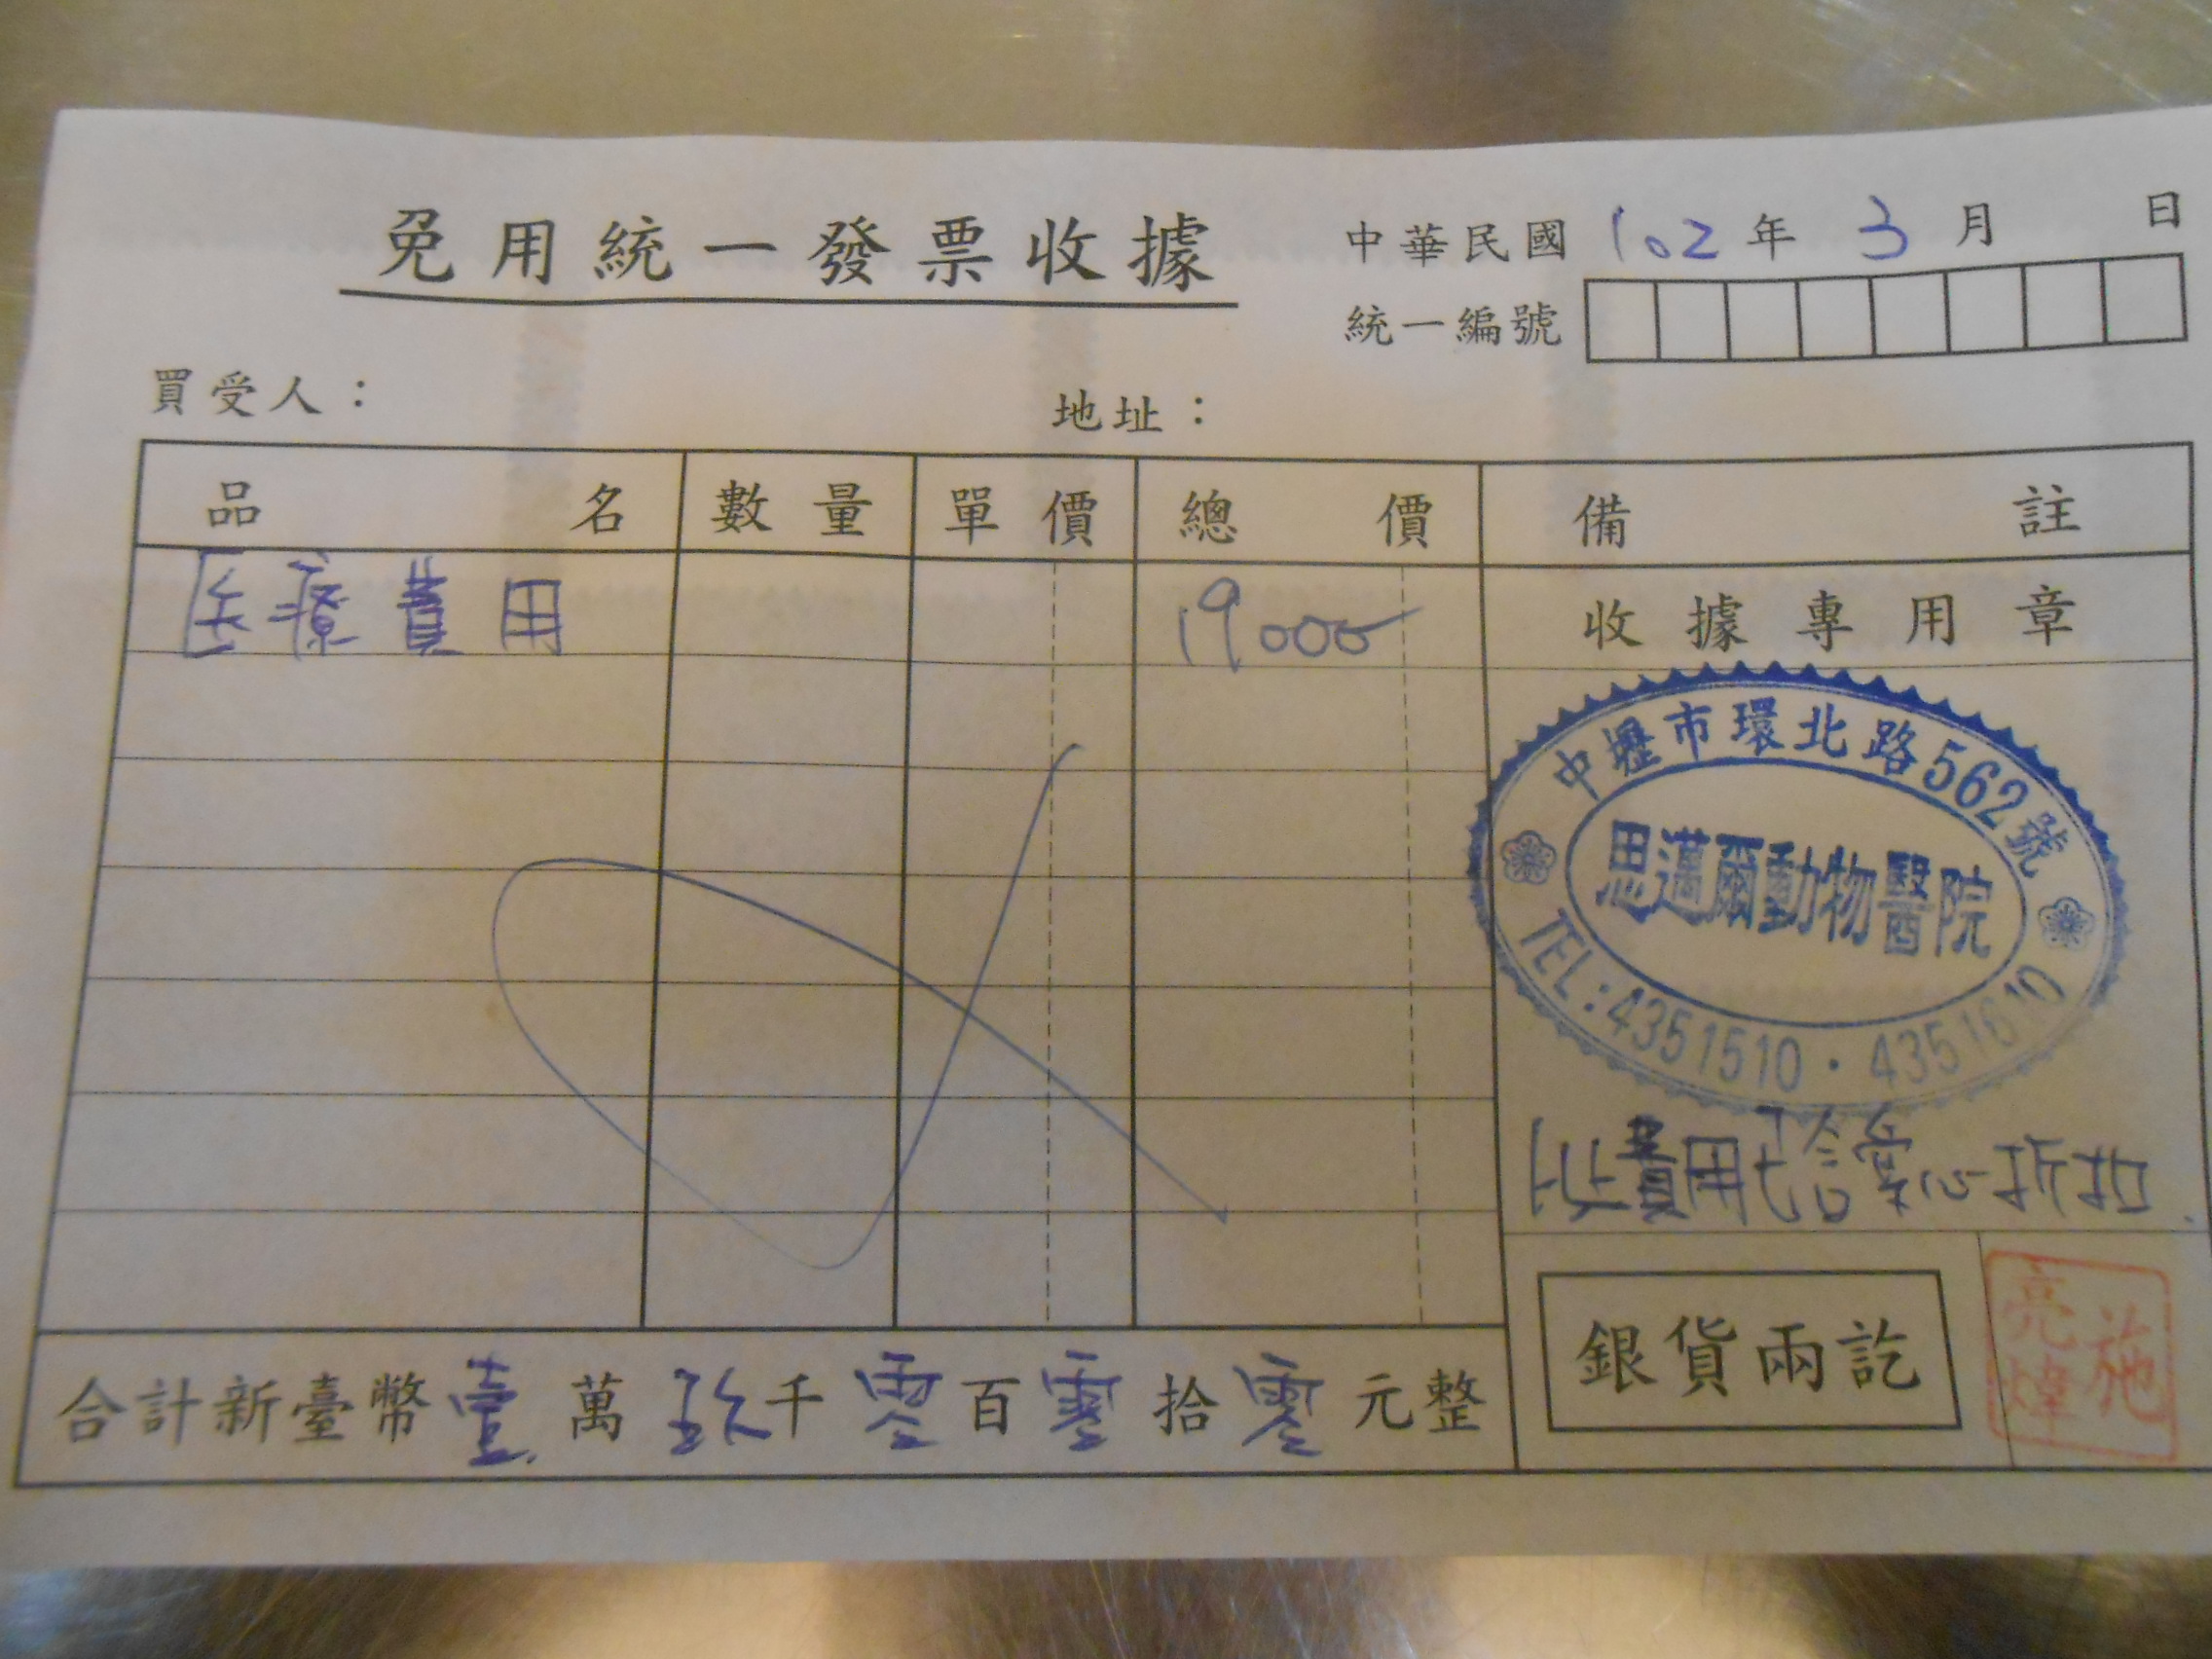 免用統一發票收據
中華民國 102 年 3 月 日
統一編號
買受人：
地址：
品名 數量 單價 總價 備註
医療費用 19000
收據專用章
中壢市環北路562號
思邁爾動物醫院
TEL:4351510·4351610
此費用已含愛心折扣.
合計新臺幣壹萬玖千零百零拾零元整
銀貨兩訖
施亮煒